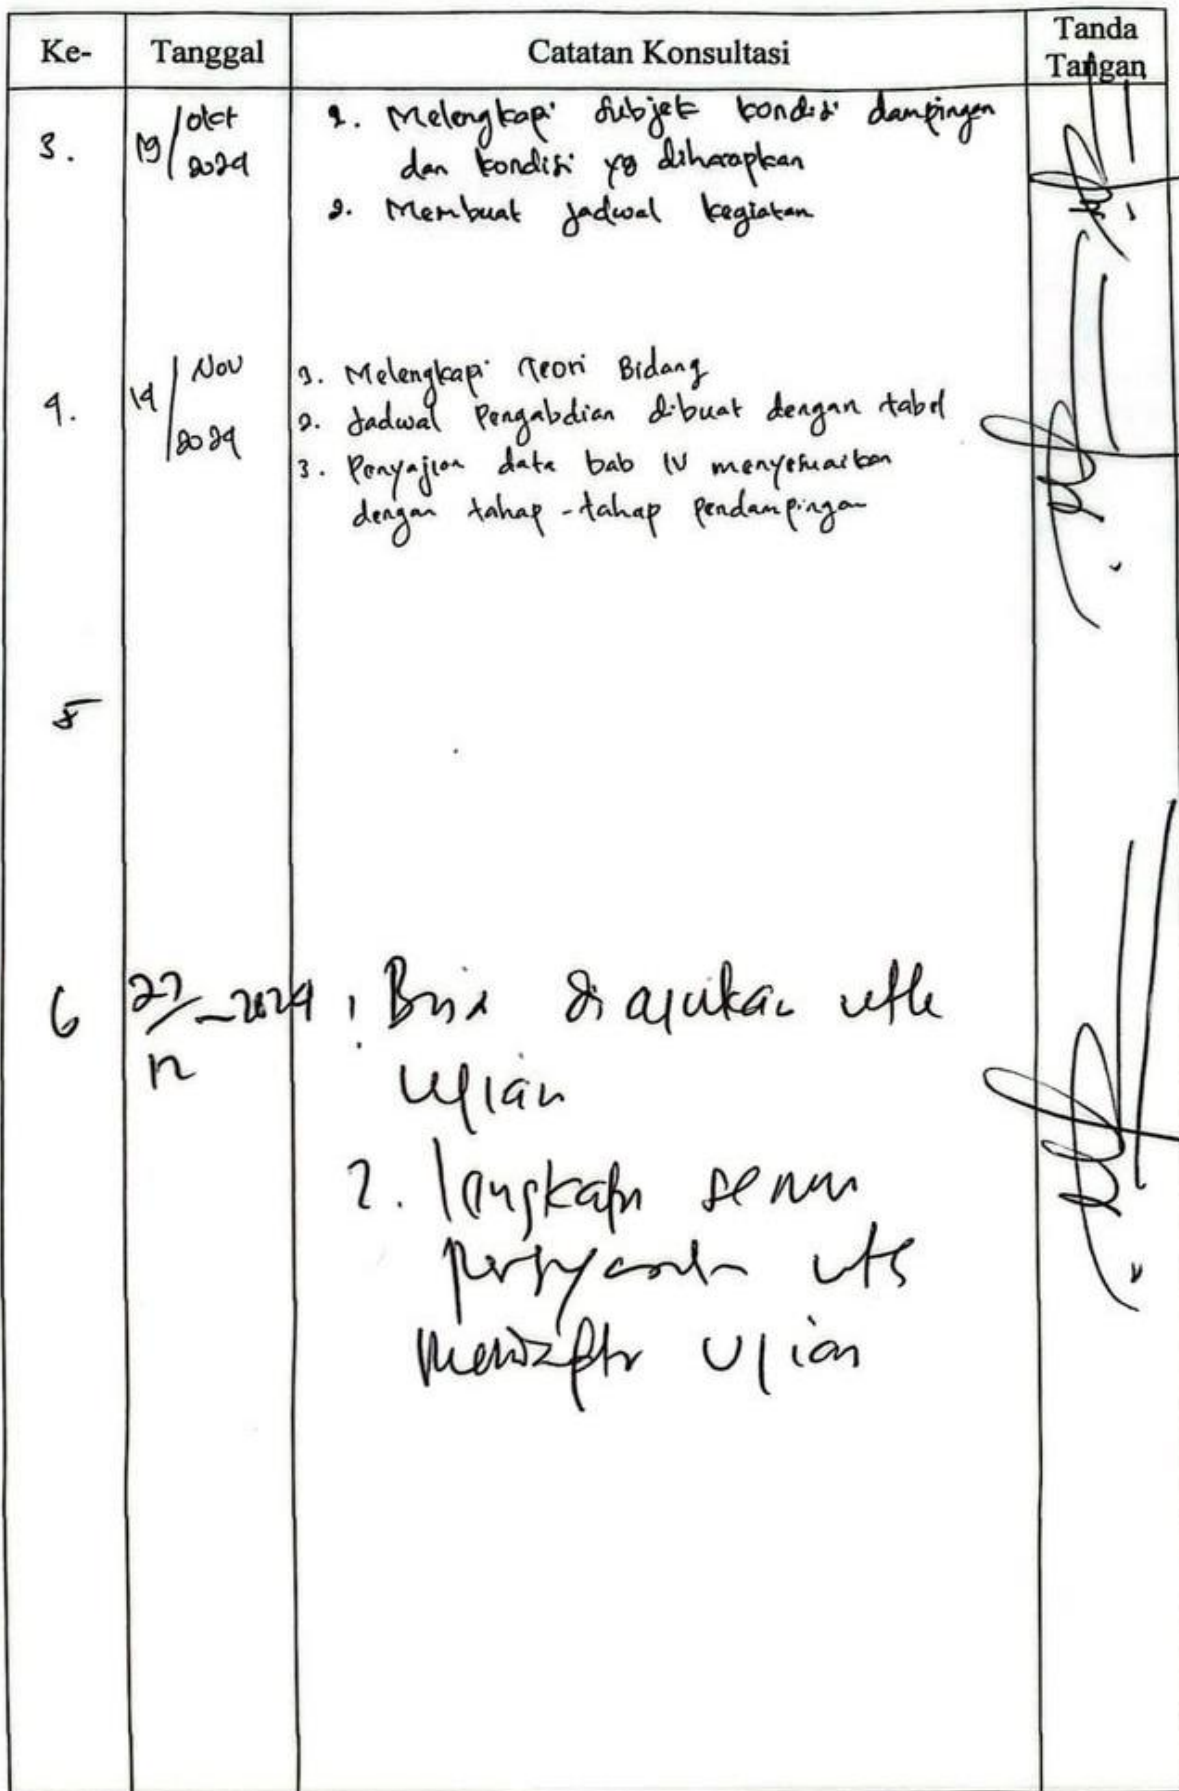 Ke-
Tanggal
Catatan Konsultasi
Tanda
Tangan
3.
19/ okt
2024
1. Melengkapi subjek kondisi dampingan
dan kondisi yg diharapkan
2. Membuat jadwal kegiatan
4.
14/ Nov
2024
1. Melengkapi Teori Bidang
2. Jadwal Pengabdian dibuat dengan tabel
3. Penyajian data bab IV menyesuaikan
dengan tahap-tahap pendampingan
5
6
27/12-2024
1. Bisa diajukan utk
Ujian
2. lengkapi semua
persyaratan utk
mendaftar Ujian